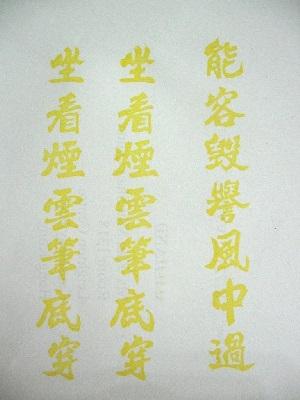 能容毁譽風中過
坐看煙雲筆底穿
坐看煙雲筆底穿